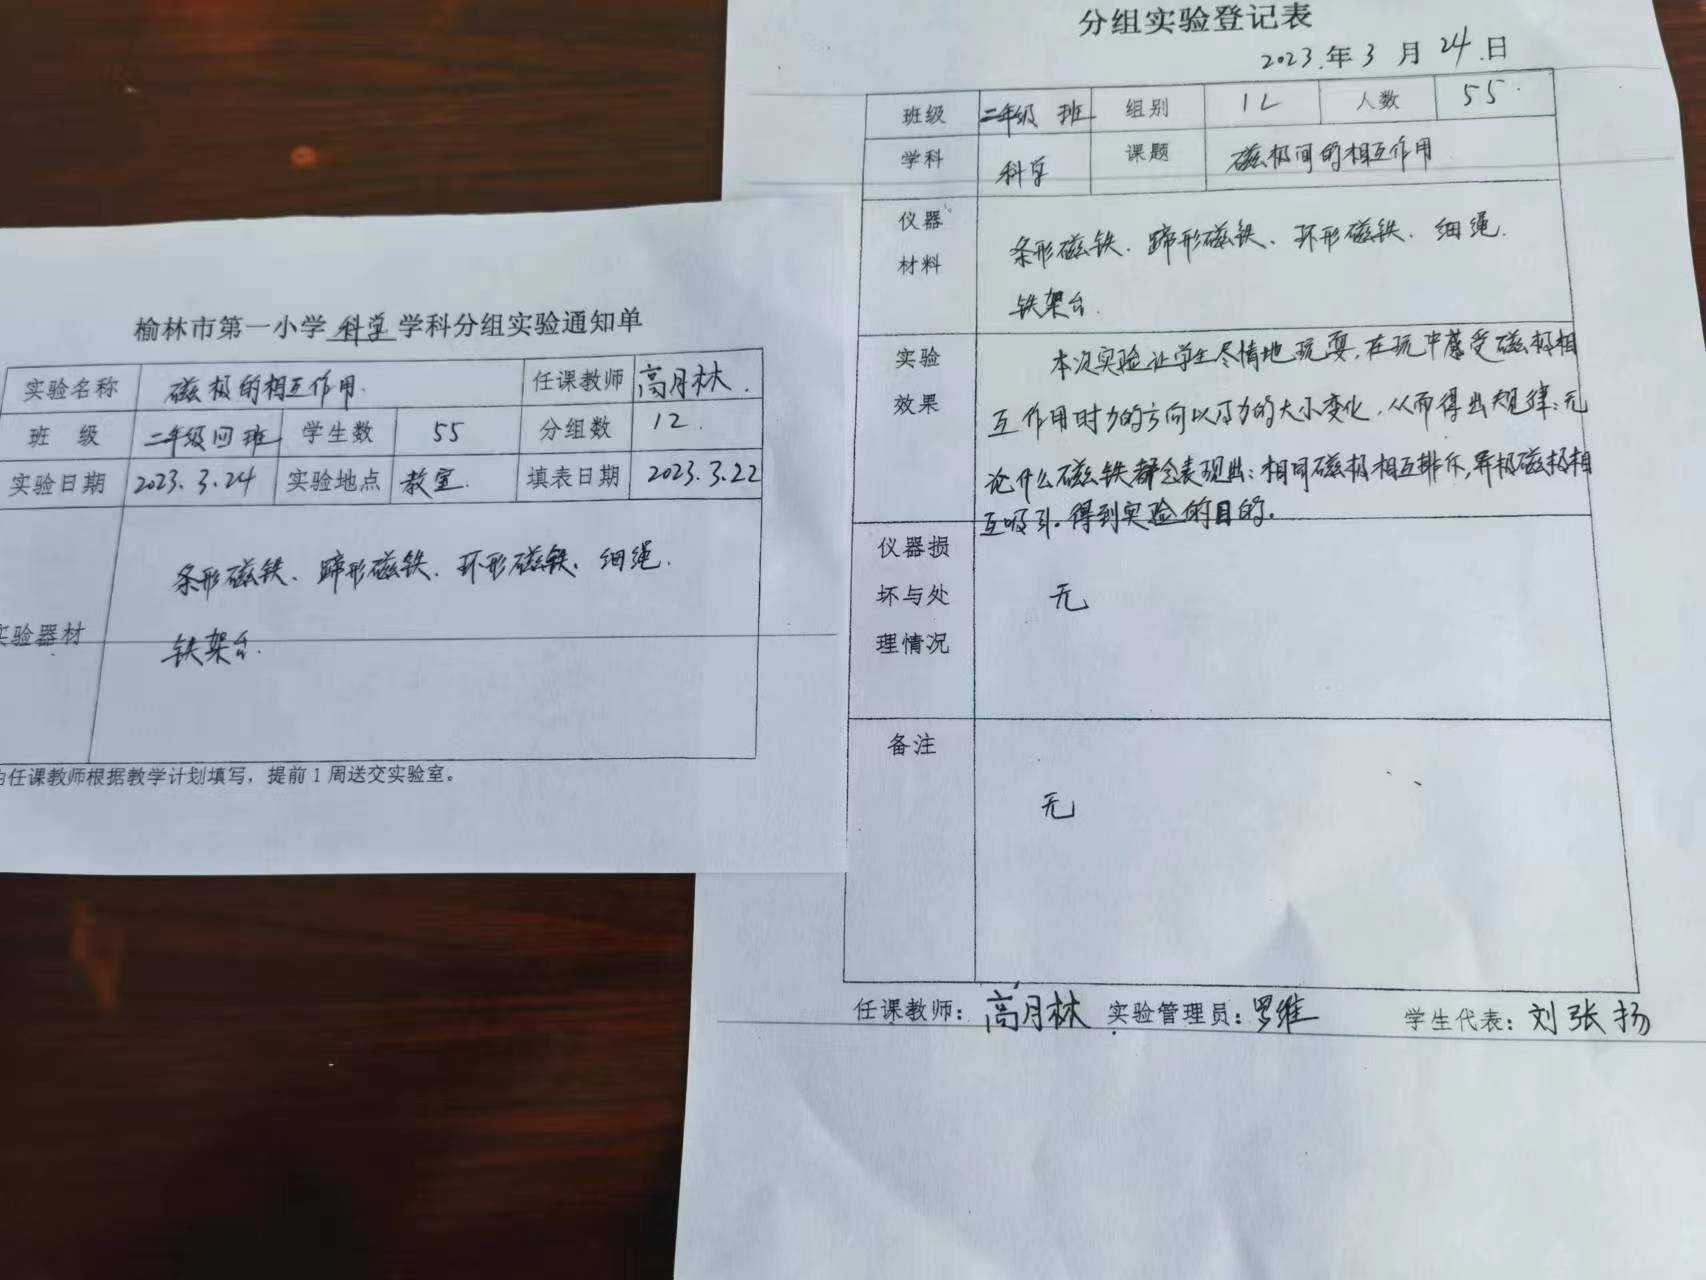 榆林市第一小学科学学科分组实验通知单
实验名称 磁极的相互作用. 任课教师 高月林.
班 级 二年级四班 学生数 55 分组数 12.
实验日期 2023.3.24 实验地点 教室. 填表日期 2023.3.22
条形磁铁、蹄形磁铁、环形磁铁、细绳.
实验器材 铁架台.
由任课教师根据教学计划填写，提前1周送交实验室。
分组实验登记表
2023.年3月24.日
班级 二年级 班 组别 12 人数 55.
学科 科学 课题 磁极间的相互作用
仪器 条形磁铁、蹄形磁铁、环形磁铁、细绳.
材料 铁架台.
实验 本次实验让学生尽情地玩耍,在玩中感受磁极相
效果 互作用时力的方向以及力的大小变化,从而得出规律:无
论什么磁铁都会表现出:相同磁极相互排斥,异极磁极相
互吸引。得到实验的目的。
仪器损
坏与处 无
理情况
备注
无
任课教师：高月林 实验管理员：罗维 学生代表：刘张扬